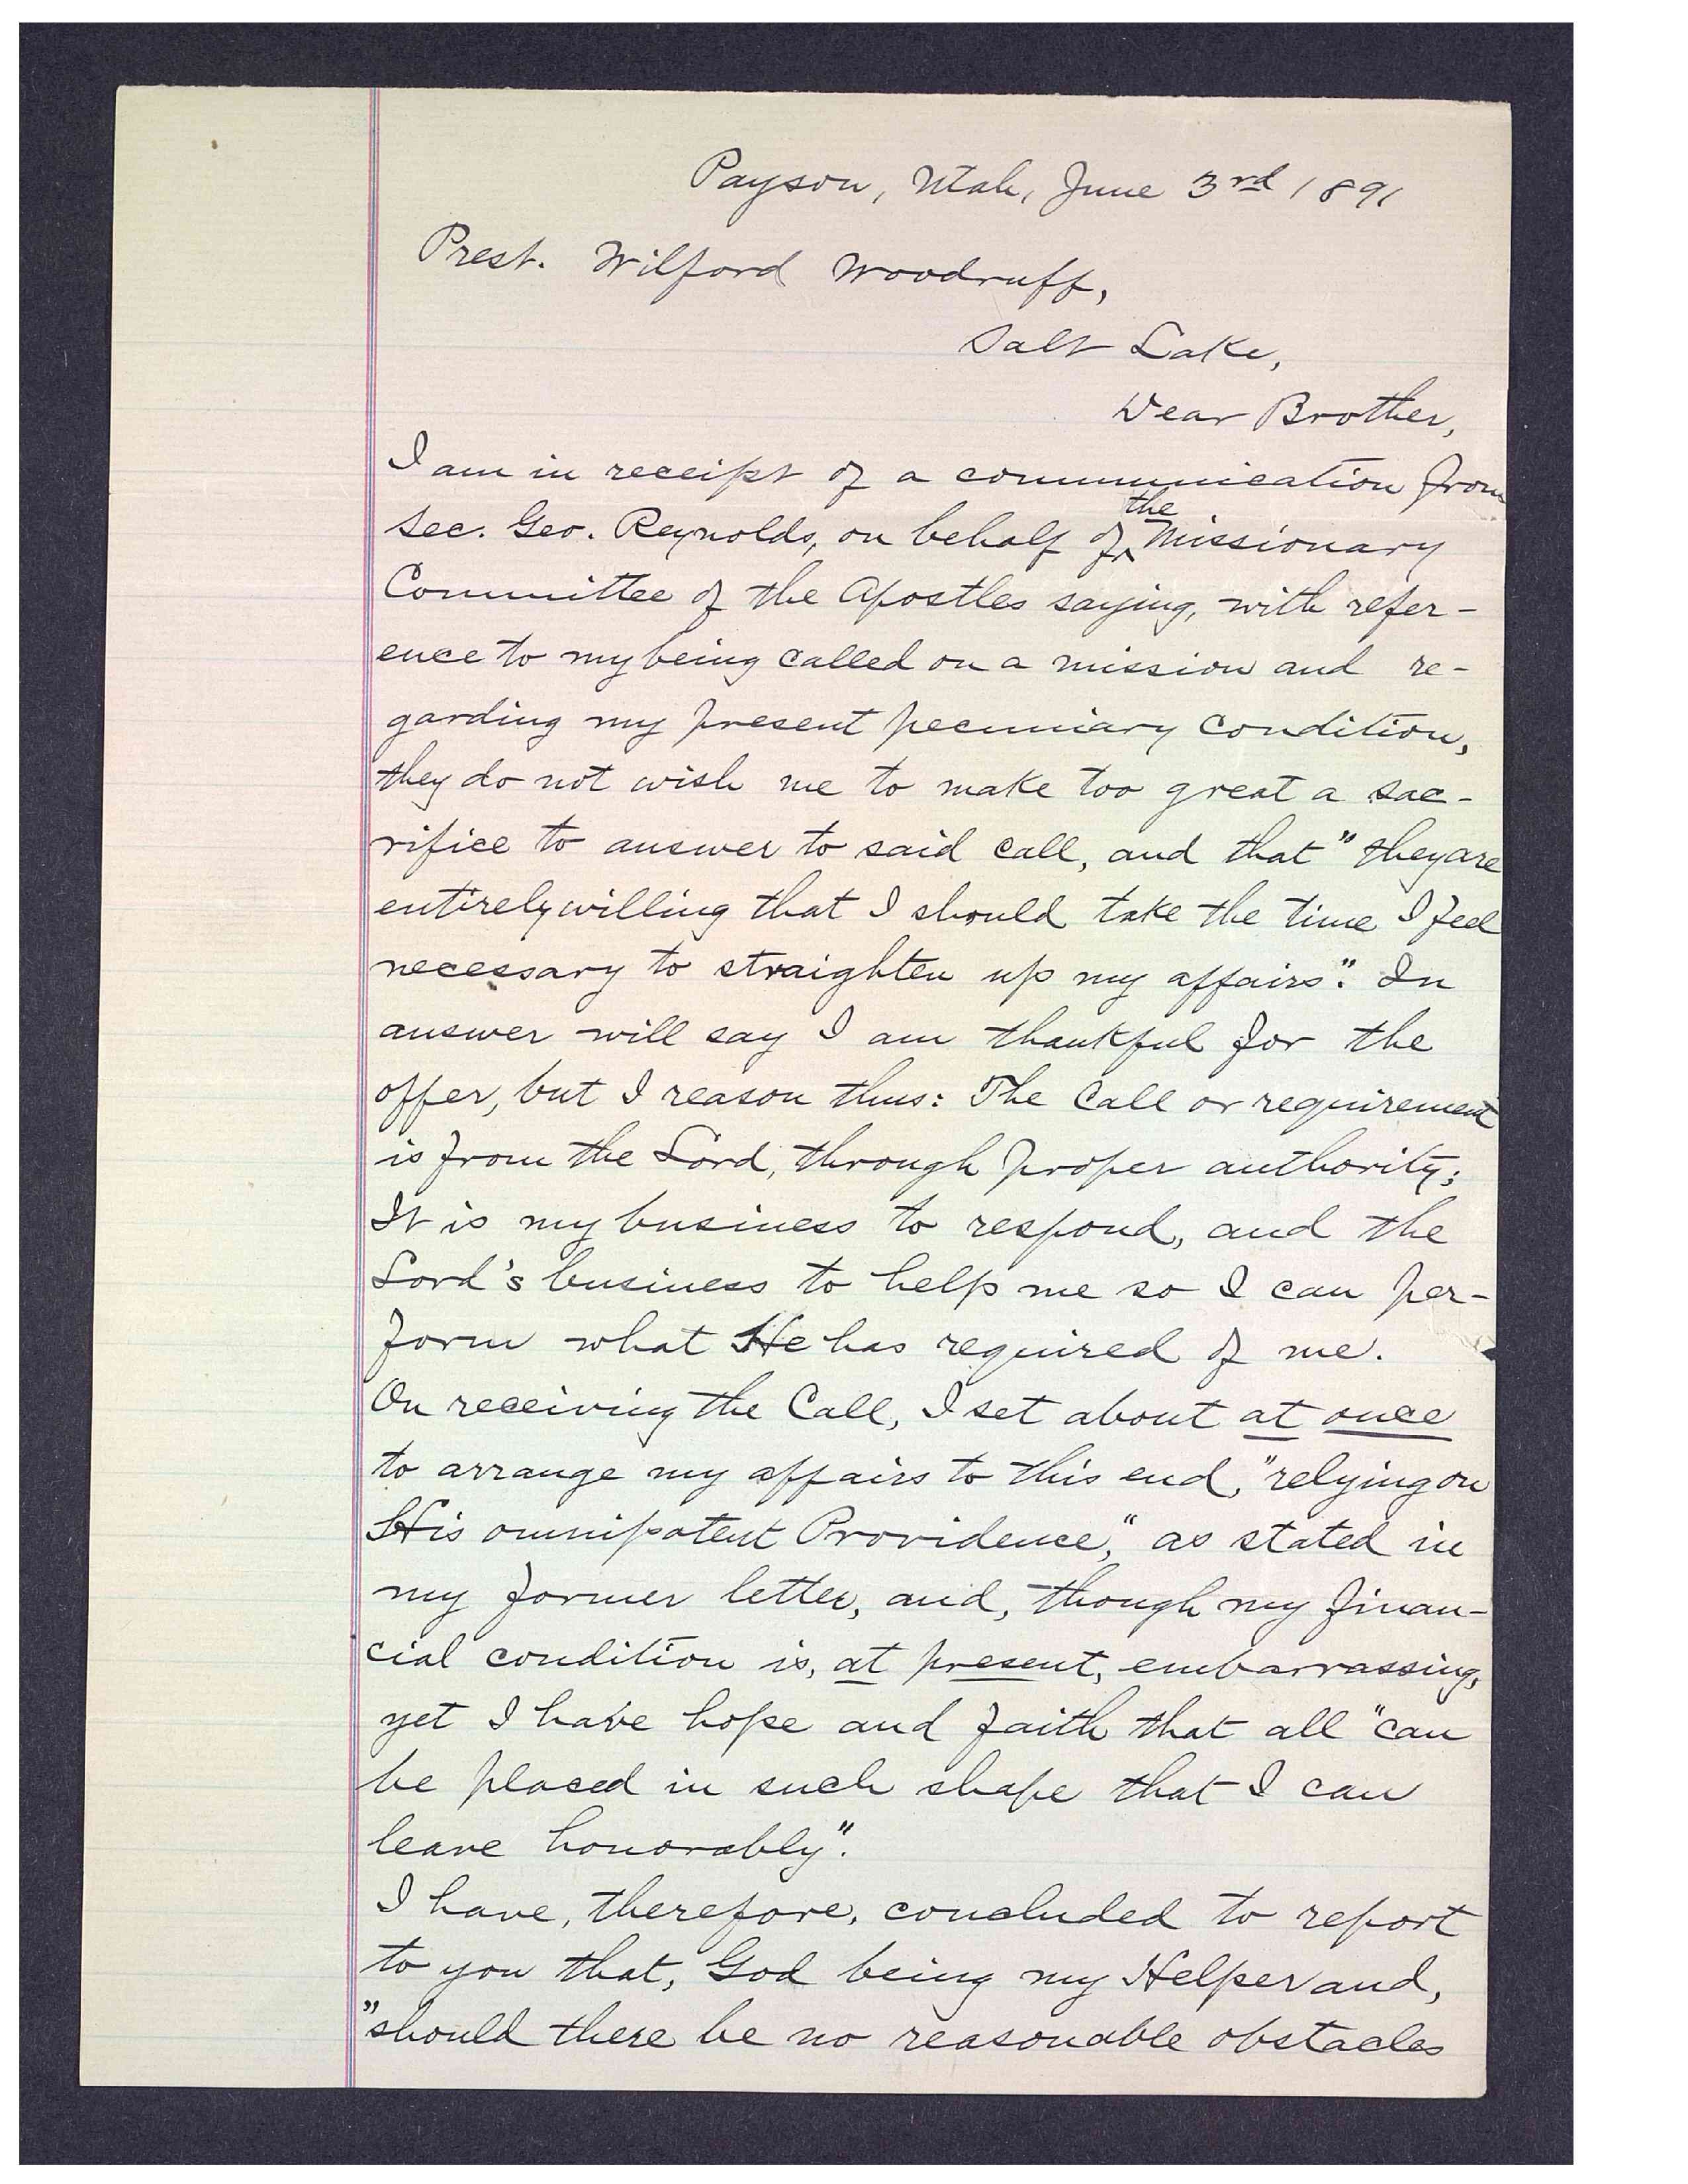 Payson, Utah, June 3rd 1891
Prest. Wilford Woodruff,
Salt Lake,
Dear Brother,
I am in receipt of a communication from
the
Sec. Geo. Reynolds, on behalf of ^ Missionary
Committee of the Apostles saying, with refer-
ence to my being called on a mission and re-
garding my present pecuniary condition,
they do not wish me to make too great a sac-
rifice to answer to said call, and that "they are
entirely willing that I should take the time I feel
necessary to straighten up my affairs". In
answer will say I am thankful for the
offer, but I reason thus: The Call or requirement
is from the Lord, through proper authority;
It is my business to respond, and the
Lord's business to help me so I can per-
form what He has required of me.
On receiving the Call, I set about at once
to arrange my affairs to this end, "relying on
His omnipotent Providence," as stated in
my former letter, and, though my finan-
cial condition is, at present, embarrassing,
yet I have hope and faith that all "can
be placed in such shape that I can
leave honorably".
I have, therefore, concluded to report
to you that, God being my Helper and,
"should there be no reasonable obstacles